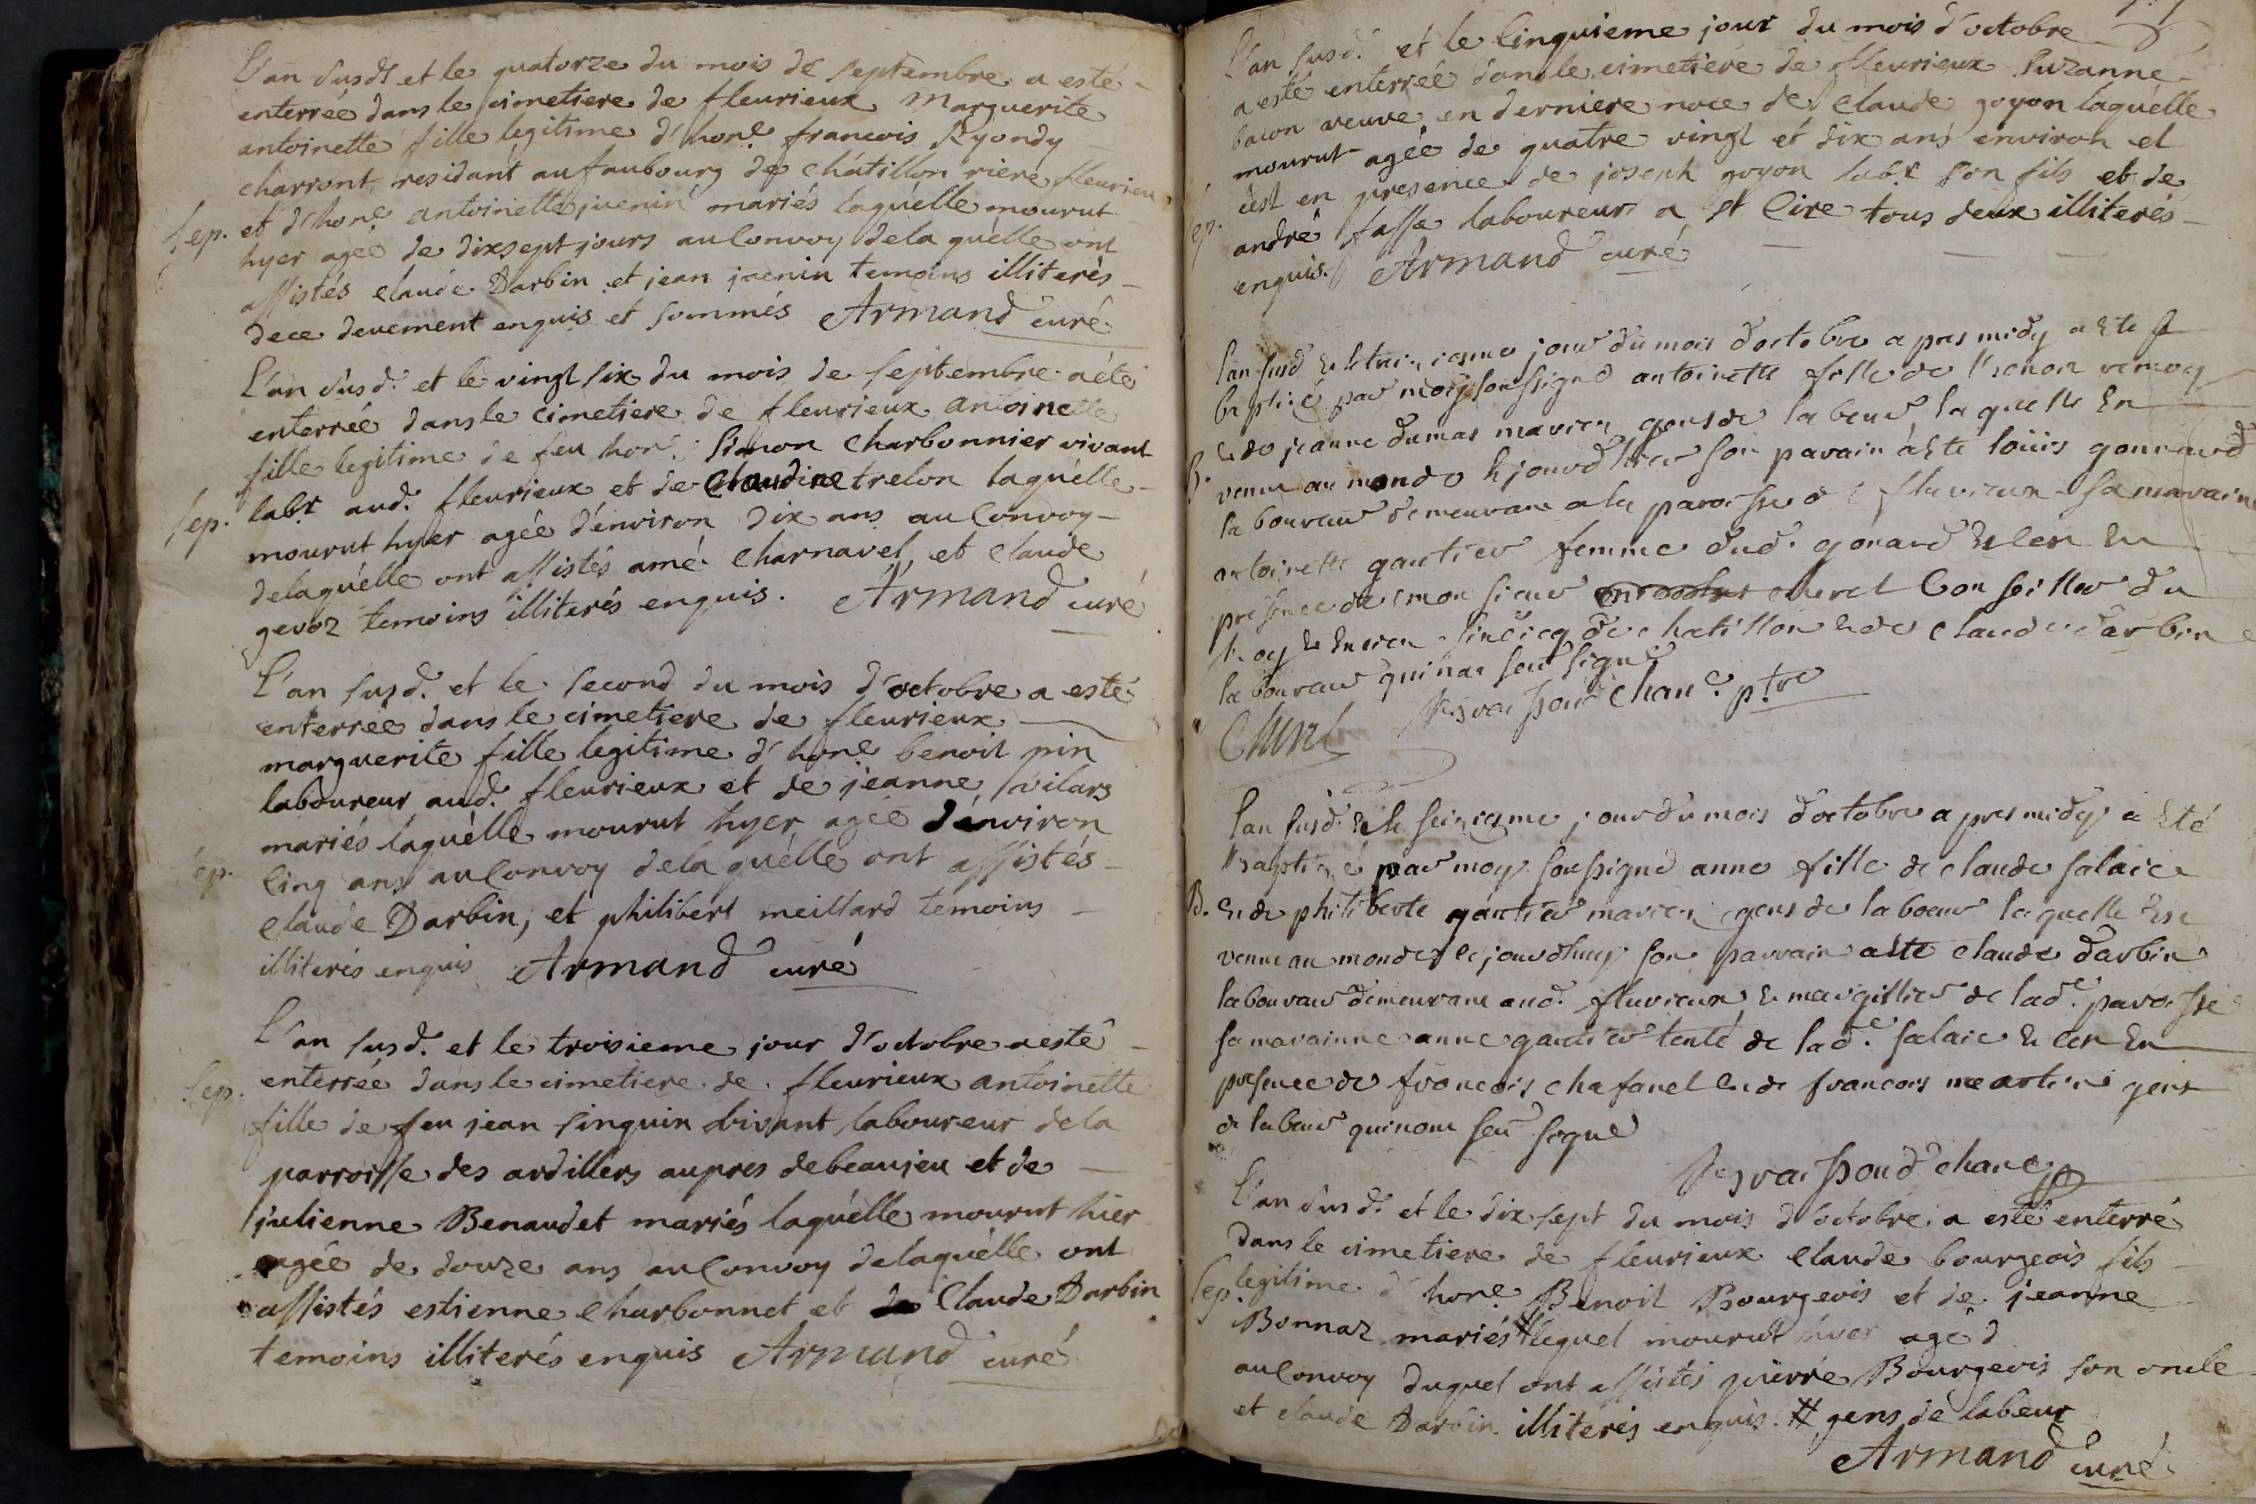 L'an susdt et le quatorze du mois de septembre a esté
enterrée dans le cimetiere de fleurieux Marguerite
antoinette fille legitime d'honle francois Ryondy
charront residant au faubourg de châtillon riere fleurieu
Sep. et d'honle antoinette juenin mariés laquélle mourut
hyer agée de dixsept jours au Convoy dela quélle ont
assistés claude Darbin et jean juenin temoins illiterés
dece deuement enquis et sommés Armand curé
L'an susd. et le vingt six du mois de septembre a été
enterrée dans le cimetiere de fleurieux antoinette
fille legitime de feu hon. simon charbonnier vivant
Sep. labr aud. fleurieux et de Claudine trelon laquélle
mourut hyer agée d'environ dix ans au Convoy
delaquélle ont assistés amé charnavel, et claude
gevoz temoins illiterés enquis. Armand curé
L'an susd. et le second du mois d'octobre a esté
enterrée dans le cimetiere de fleurieux
marguerite fille legitime d'honle benoit pin
laboureur aud. fleurieux et de jeanne vilars
mariés laquélle mourut hyer agée d'environ
Sep. Cinq ans au Convoy dela quélle ont assistés
claude Darbin, et philibert meillard temoins
illiterés enquis Armand curé
L'an susd. et le troisieme jour d'octobre a esté
Sep. enterrée dans le cimetiere de fleurieux antoinette
fille de feu jean singuin vivant laboureur dela
parroisse des ardillers aupres debeaujeu et de
julienne Benaudet mariés laquélle mourut hier
agée de douze ans au Convoy delaquélle ont
assistés estienne charbonnet et Claude Darbin
temoins illiterés enquis Armand curé
L'an susd. et le Cinquieme jour du mois d'octobre
a esté enterrée dans le cimetiere de fleurieux Suzanne
bacon veuve en derniere noce de Claude goyon laquélle
mourut agée de quatre vingt et dix ans environ et
c'est en presence de joseph goyon labr son fils et de
Sep. andré fasse laboureur a st Cire tous deux illiterés
enquis Armand curé
lan susd jour du mois doctobre apres midy a este
baptisé par moy soussigné antoinette fille de
et de jeanne dumas maries gens de labeur la quelle en
B. venue au monde le jourdhuy son parain a este loüis gonnard
laboureur demeurant a la paroisse de fleurieux sa maraine
antoinette gautier femme dud. gonard en
presence de mon sieur churel Conseiller du
Roy sindicq de chatillon et de claude darbin
laboureur qui nas seu signé
Churel chan. ptre
lan susd. et le jour du mois doctobre apres midy a esté
baptisé par moy soussigné anne fille de claude salaic
B. et de philiberte gautier maries gens de labeur la quelle est
venue au monde le jourdhuy son parrain a este claude darbin
laboureur demeurant aud. fleurieux et margillier de lade paroisse
sa marainne anne gautier tente de lade salaic et cest en
presence de francois chafanel et de francois martin gens
de labeur qui nont seu signé
chane
L'an susd. et le dix sept du mois d'octobre a esté enterré
dans le cimetiere de fleurieux claude bourgeois fils
Sep. legitime d'honle Benoit Bourgeois et de jeanne
Bonnaz mariés # lequel mourut hyer agé d
au Convoy duquel ont assistés pierre Bourgeois son oncle
et claude Darbin illiterés enquis. # gens de labeur
Armand curé